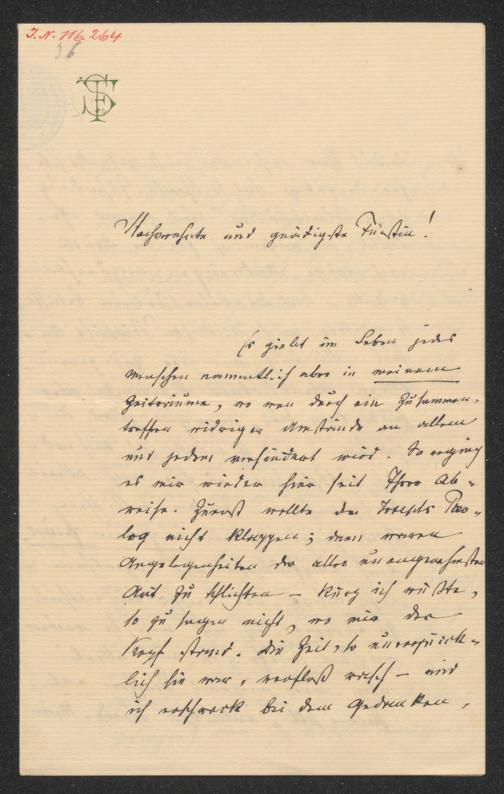 I.N. 116.264
36
Hochverehrte und gnädigste Fürstin!
Es giebt im Leben jedes
Menschen namentlich aber in meinem
Zeiträume, wo man durch ein Zusammen-
treffen widriger Umstände an allem
und jedem verhindert wird. So erging
es mir wieder hier seit Ihrer Ab-
reise. Zuerst wollte der Pro-
log nicht klappen; dann waren
Angelegenheiten der aller unangenehmsten
Art zu schlichten – kurz ich wußte,
so zu sagen nicht, wo mir der
Kopf stand. Die Zeit, so unerquick-
lich sie war, verfloß rasch – und
ich erschrak bei dem Gedanken,